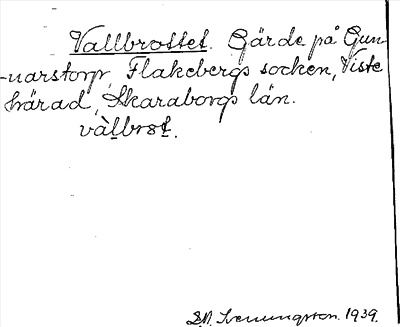 Vallbrottet. Gärde på Gun-
-narstorp, Flakebergs socken, Viste
härad, Skaraborgs län.
vàlbrot.
1939.